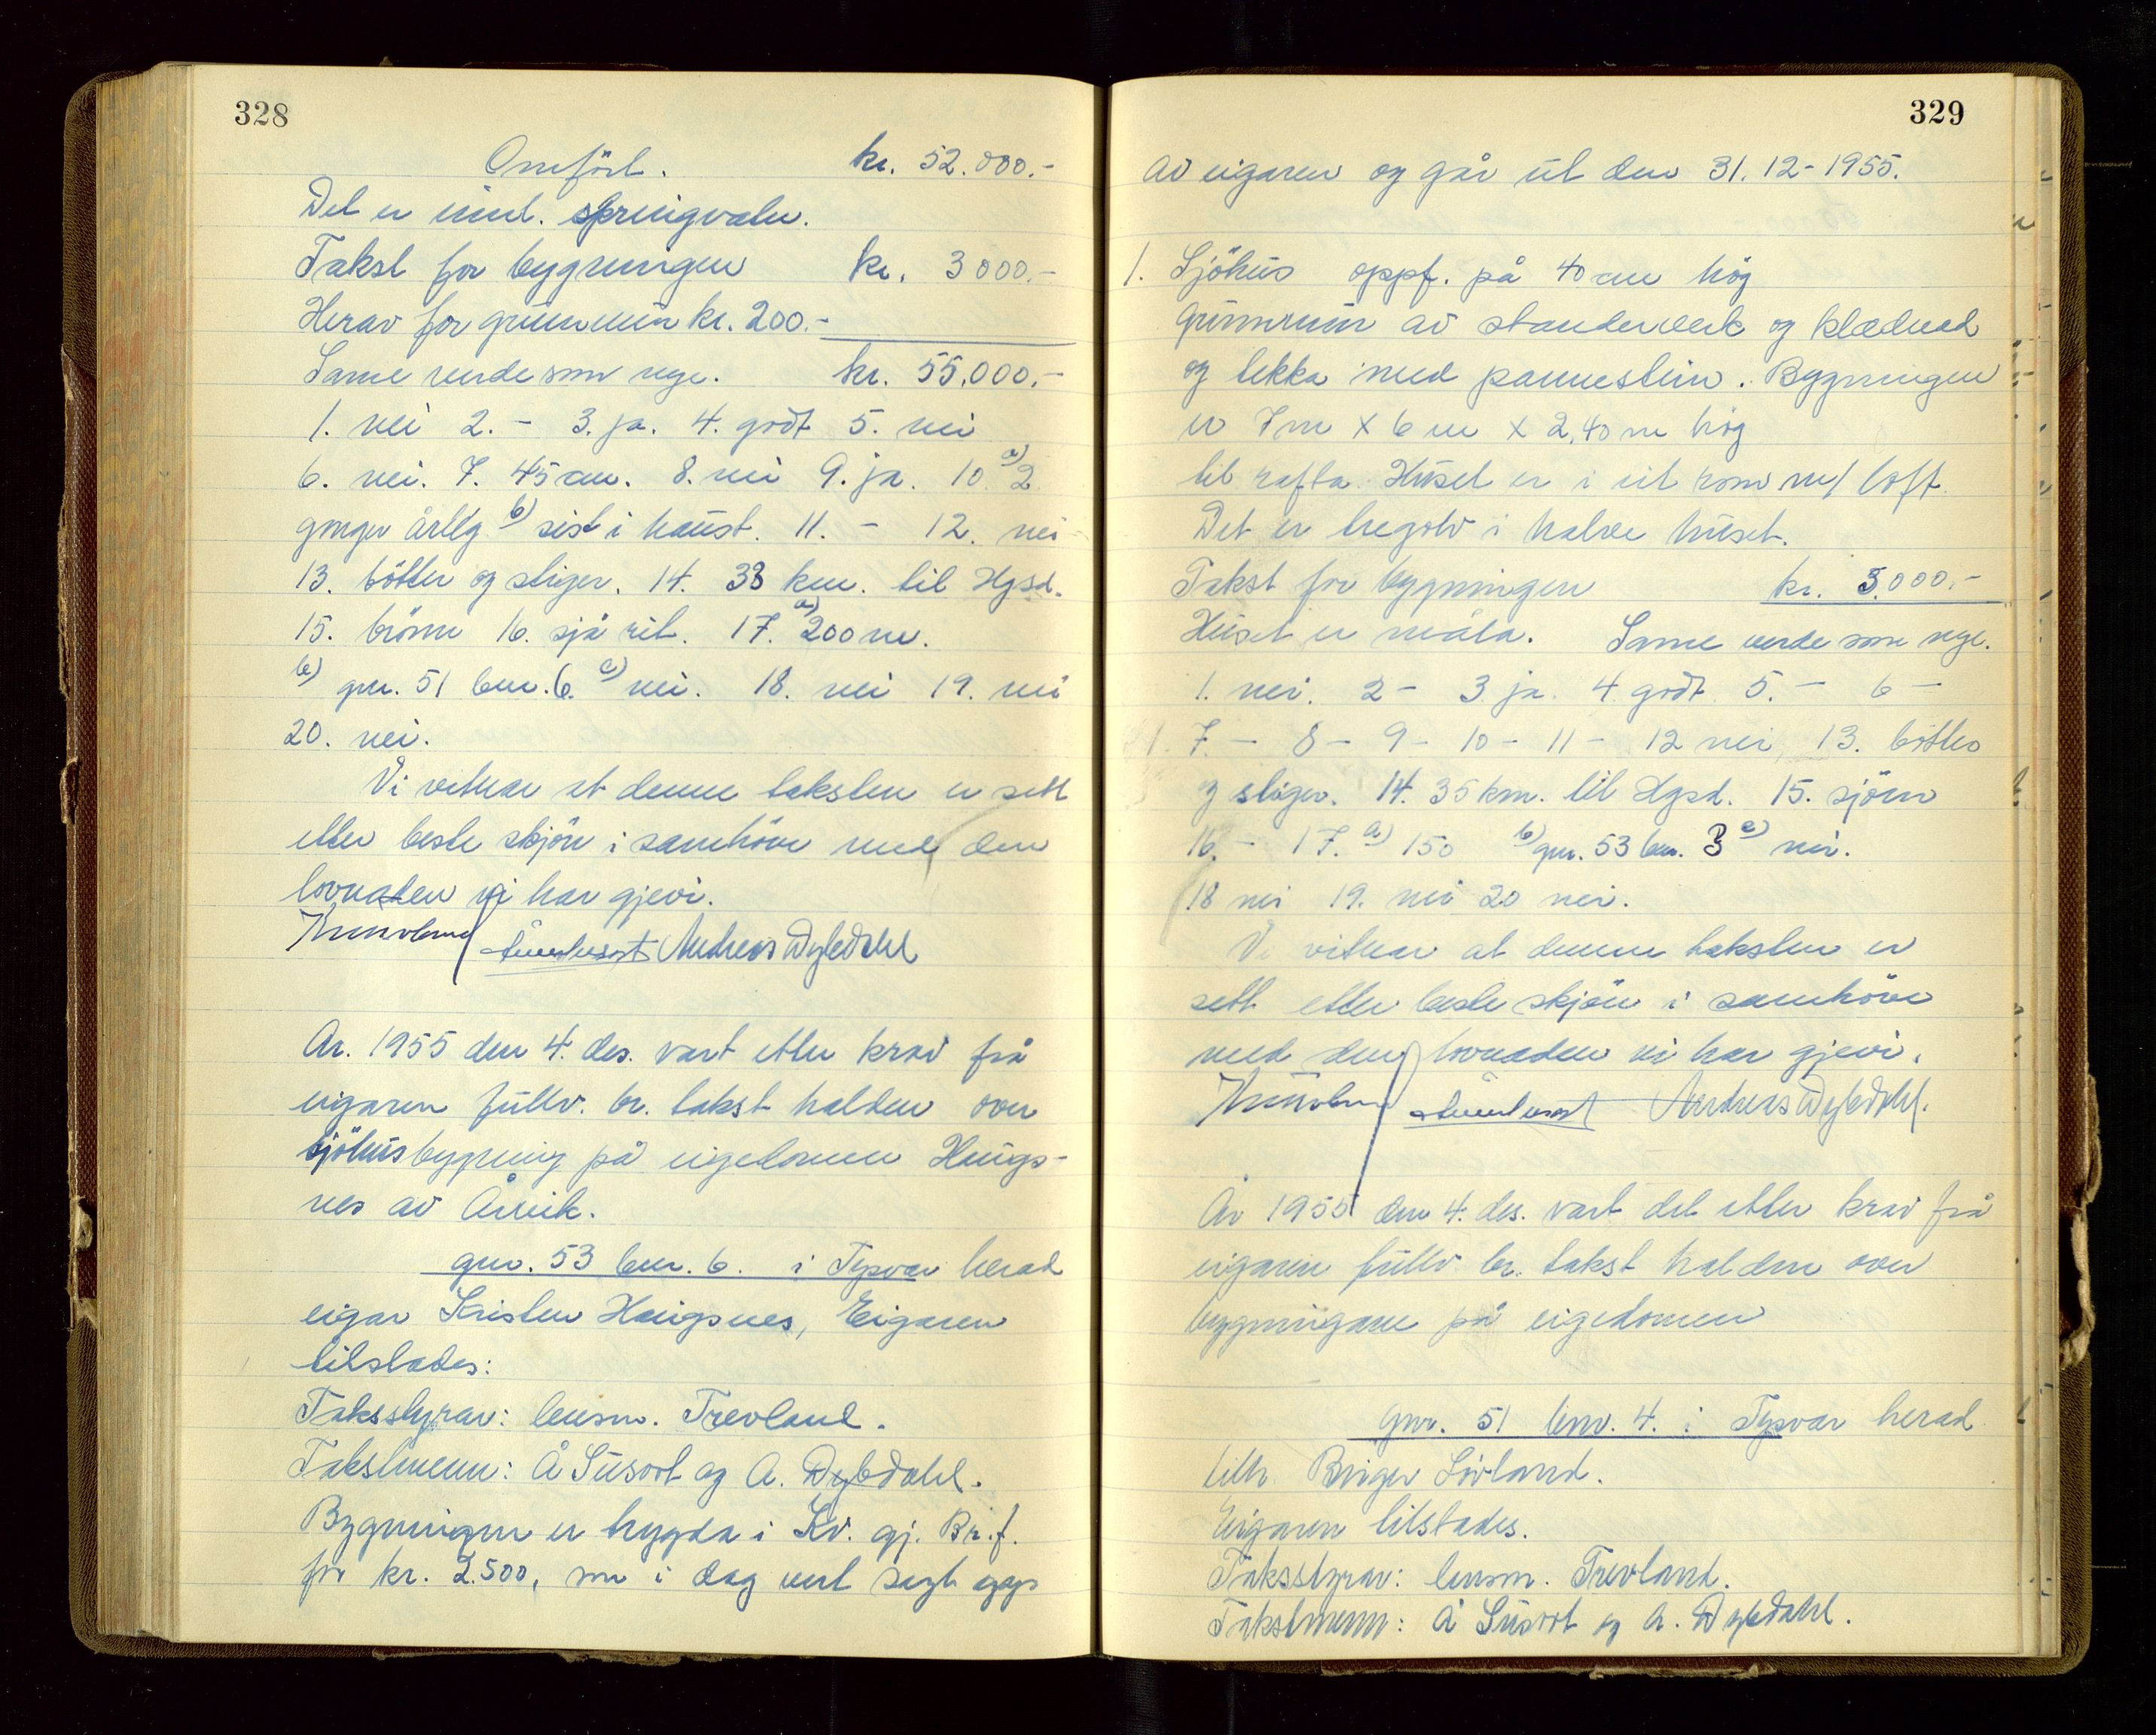 328
Omfört. kr. 52.000.-
Det er innl. springvatn.
Takst for bygningen kr. 3000.-
Herav for grunnmur kr. 200.-
Same verde som nye. kr. 55.000.-
1. nei 2. - 3. ja. 4. godt 5. nei
6. nei. 7. 45 cm. 8. nei 9. ja. 10. a) 2
gonger årleg b) sist i haust. 11. - 12. nei
13. bötter og stiger. 14. 33 km. til Hgsd.
15. brönn 16. sjå rit. 17. a) 200 m.
b) gnr. 51 bnr. 6. c) nei. 18. nei 19. nei
20. nei.
Vi vitnar at denne taksten er sett
etter beste skjön i samhöve med den
lovnaden vi har gjevi.
Andreas Dybdahl
År. 1955 den 4. des. vart etter krav frå
eigaren fullv. br. takst halden over
sjöhusbygning på eigedomen Haugs-
nes av Årvik.
gnr. 53 bnr. 6. i Tysvær herad
eigar Kristen Haugsnes, Eigaren
tilstades:
Taksstyrar: lensm. Trevland.
Takstmenn: Å Susort og A. Dybdahl.
Bygningen er trygda i Kv. gj. Br.f.
for kr. 2.500, som i dag vert sagt opp
329
av eigaren og går ut den 31.12-1955.
1. Sjöhus oppf. på 40 cm hög
Grunnmur av standerverk og klædnad
og tekka med pannestein. Bygningen
er 7 m x 6 m x 2,40 m hög
til rafta. Huset er i eit rom m/ loft.
Det er tregolv i halve huset.
Takst for bygningen kr. 3.000.-
Huset er måla. Same verde som nye.
1. nei. 2 - 3. ja. 4. godt 5. - 6 -
7. - 8 - 9 - 10 - 11 - 12 nei, 13. bötter
og stiger. 14. 35 km. til Hgsd. 15. sjöen
16. - 17. a) 150 b) gnr. 53 bnr. 3 c) nei.
18 nei 19. nei 20 nei.
Vi vitnar at denne taksten er
sett etter beste skjön i samhöve
med den lovnaden vi har gjevi.
Andreas Dybdahl.
År 1955 den 4. des. vart det etter krav frå
eigaren fullv. br. takst halden over
bygningane på eigedomen
gnr. 51 bnr. 4. i Tysvær herad
tilh. Birger Lövland.
Eigaren tilstades.
Taksstyrar: lensm. Trevland.
Takstmenn: Å Susort og A. Dybdahl.